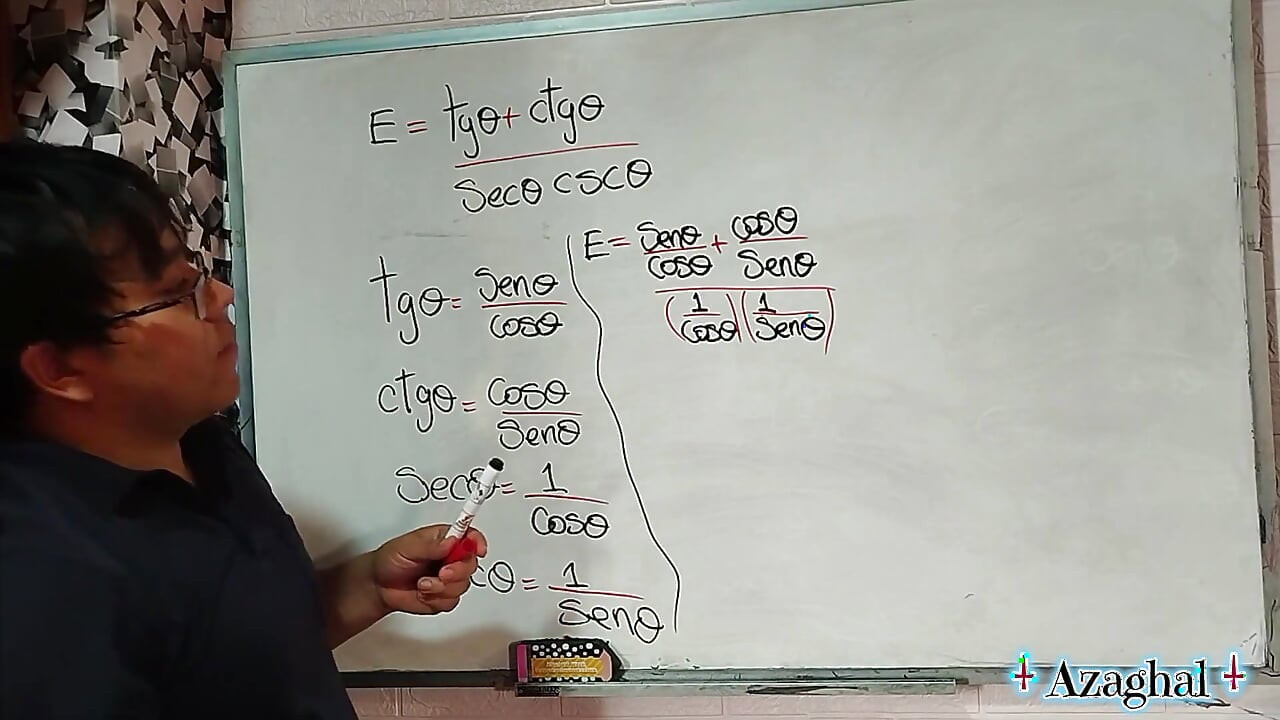 E = tgθ + ctgθ
secθ cscθ
tgθ = senθ
cosθ
ctgθ = cosθ
senθ
secθ = 1
cosθ
cθ = 1
senθ
E = senθ + cosθ
cosθ senθ
(1)(1)
cosθ senθ
Azaghal